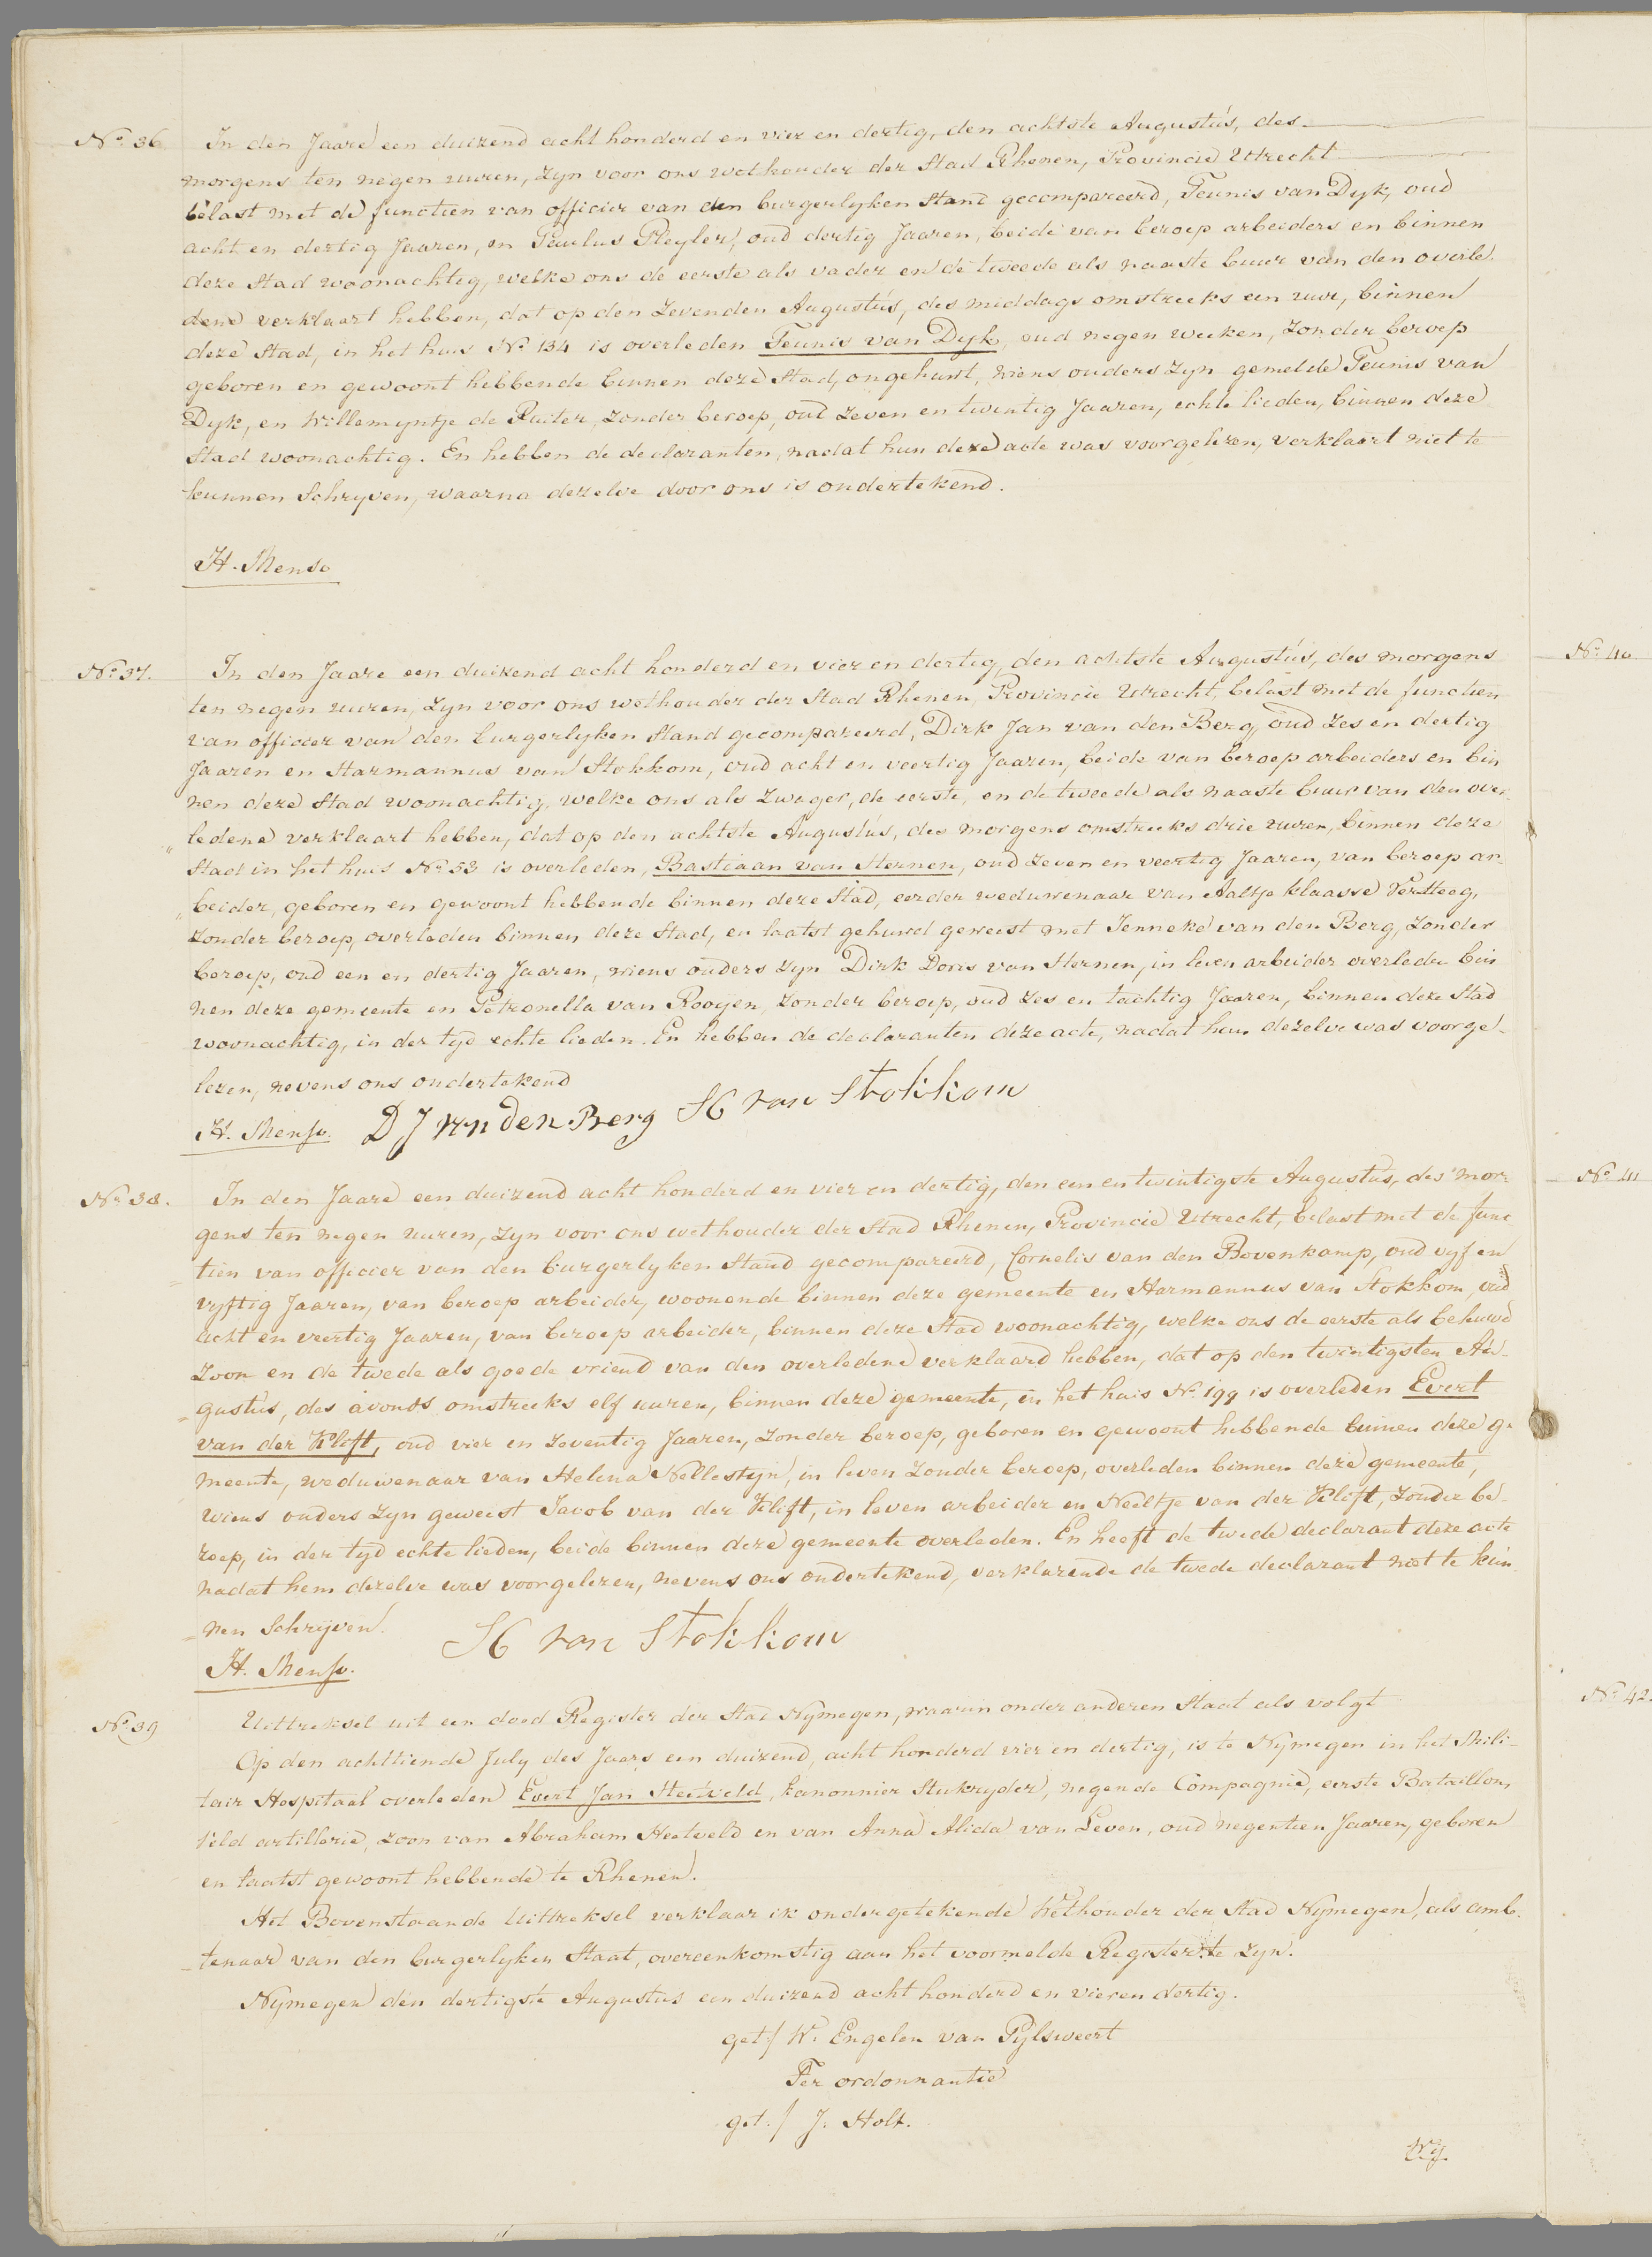 No. 36 In den Jaare een duizend acht honderd en vier en dertig, den achtste Augustus, des
morgens ten negen uuren, zyn voor ons wethouder der Stad Rhenen, Provincie Utrecht
belast met de functien van officier van den burgerlyken Stand gecompareerd, Teunis van Dyk, oud
acht en dertig Jaaren, en Paulus Pleyler, oud dertig Jaaren, beide van beroep arbeiders en binnen
deze Stad woonachtig, welke ons de eerste als vader en de tweede als naaste buur van den overle
dene verklaart hebben, dat op den Zevenden Augustus, des middags omstreeks een uur, binnen
deze Stad, in het huis No. 134 is overleden Teunis van Dyk, oud negen weeken, zonder beroep
geboren en gewoont hebbende binnen deze Stad, ongehuwt, wiens ouders zyn gemelde Teunis van
Dyk, en Willemyntje de Ruiter, zonder beroep, oud zeven en twintig Jaaren, echte lieden, binnen deze
Stad woonachtig. En hebben de declaranten, nadat hun deze acte was voorgelezen, verklaart niet te
kunnen Schryven, waarna dezelve door ons is ondertekend.
H. Menso
No. 37. In den Jaare een duizend acht honderd en vier en dertig, den achtste Augustus, des morgens
ten negen uuren, zyn voor ons wethouder der Stad Rhenen, Provincie Utrecht, belast met de functien
van officier van den burgerlyken Stand gecompareerd, Dirk Jan van den Berg, oud zes en dertig
Jaaren en Harmannus van Stokkom, oud acht en veertig Jaaren, beide van beroep arbeiders en bin
nen deze Stad woonachtig, welke ons als Zwager, de eerste, en de tweede als naaste buur van den over
„ledene verklaart hebben, dat op den achtste Augustus, des morgens omstreeks drie uuren, binnen deze
Stad in het huis No. 53 is overleden, Bastiaan van Hernen, oud zeven en veertig Jaaren, van beroep ar-
„beider, geboren en gewoont hebbende binnen deze Stad, eerder weduwenaar van Aaltje Klaasse Versteeg,
zonder beroep, overleden binnen deze Stad, en laatst gehuwd geweest met Jenneke van den Berg, zonder
beroep, oud een en dertig Jaaren, wiens ouders zyn Dirk Dorus van Hernen, in leven arbeider overleden bin
nen deze gemeente en Petronella van Rooijen, zonder beroep, oud zes en tachtig Jaaren, binnen deze Stad
woonachtig, in der tyd echte lieden. En hebben de declaranten deze acte, nadat hun dezelve was voorge-
lezen, nevens ons ondertekend
H. Menso. D J van den Berg H van Stokkom
No. 38. In den Jaare een duizend acht honderd en vier en dertig, den een en twintigste Augustus, des mor
gens ten negen uuren, zyn voor ons wethouder der Stad Rhenen, Provincie Utrecht, belast met de func
tien van officier van den burgerlyken Stand gecompareerd, Cornelis van den Bovenkamp, oud vyf en
vyftig Jaaren, van beroep arbeider, woonende binnen deze gemeente en Harmannus van Stokkom, oud
acht en veertig Jaaren, van beroep arbeider, binnen deze Stad woonachtig, welke ons de eerste als behuwd
Zoon en de twede als goede vriend van den overledene verklaard hebben, dat op den twintigsten Au-
gustus, des avonds omstreeks elf uuren, binnen deze gemeente, in het huis No. 199 is overleden Evert
van der Klift, oud vier en zeventig Jaaren, zonder beroep, geboren en gewoont hebbende binnen deze ge
meente, weduwenaar van Helena Nellestyn, in leven zonder beroep, overleden binnen deze gemeente,
wiens ouders zyn geweest Jacob van der Klift, in leven arbeider en Neeltje van der Klift, zonder be-
roep, in der tyd echte lieden, beide binnen deze gemeente overleden. En heeft de twede declarant deze acte
nadat hem dezelve was voorgelezen, nevens ons ondertekend, verklarende de twede declarant niet te kun
nen Schrijven.
H. Menso. H van Stokkom
No. 39 Uittreksel uit een dood Register der Stad Nymegen, waarin onder anderen Staat als volgt
Op den achttiende July des Jaars een duizend, acht honderd vier en dertig, is te Nymegen in het Mili-
tair Hospitaal overleden Evert Jan Heetveld, kanonnier Stukryder, negende Compagnie, eerste Bataillon,
Veld artillerie, zoon van Abraham Heetveld en van Anna Alida van Leven, oud negentien Jaaren, geboren
en laatst gewoont hebbende te Rhenen.
Het Bovenstaande Uittreksel verklaar ik ondergetekende Wethouder der Stad Nymegen, als amb-
tenaar van den burgerlyken Staat, overeenkomstig aan het voormelde Register te zyn.
Nymegen den dertigste Augustus een duizend acht honderd en vier en dertig.
get/ W. Engelen van Pylsweert
Ter ordonnantie
get./ J. Holt.
Wy
No. 40
No. 41
No. 42